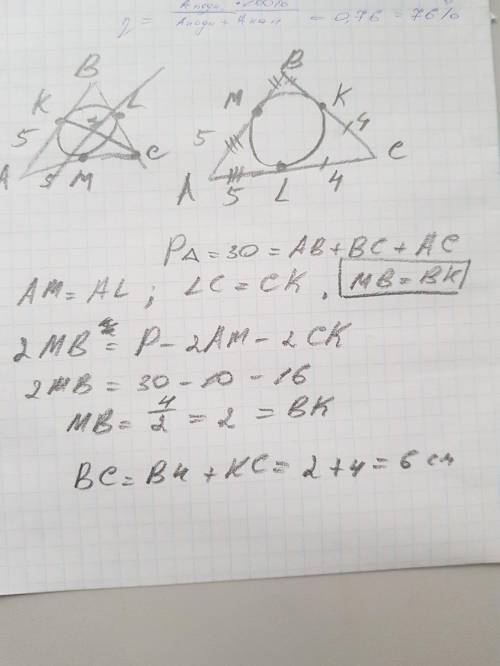 η = Aполн · 100% / Aполн + Aкан = 0,76 = 76%
B
K L
5
A 5 M C
B
M K
5 4
A 5 L 4 C
P△ = 30 = AB + BC + AC
AM = AL ; LC = CK , MB = BK
2MB = P - 2AM - 2CK
2MB = 30 - 10 - 16
MB = 4/2 = 2 = BK
BC = BK + KC = 2 + 4 = 6 см